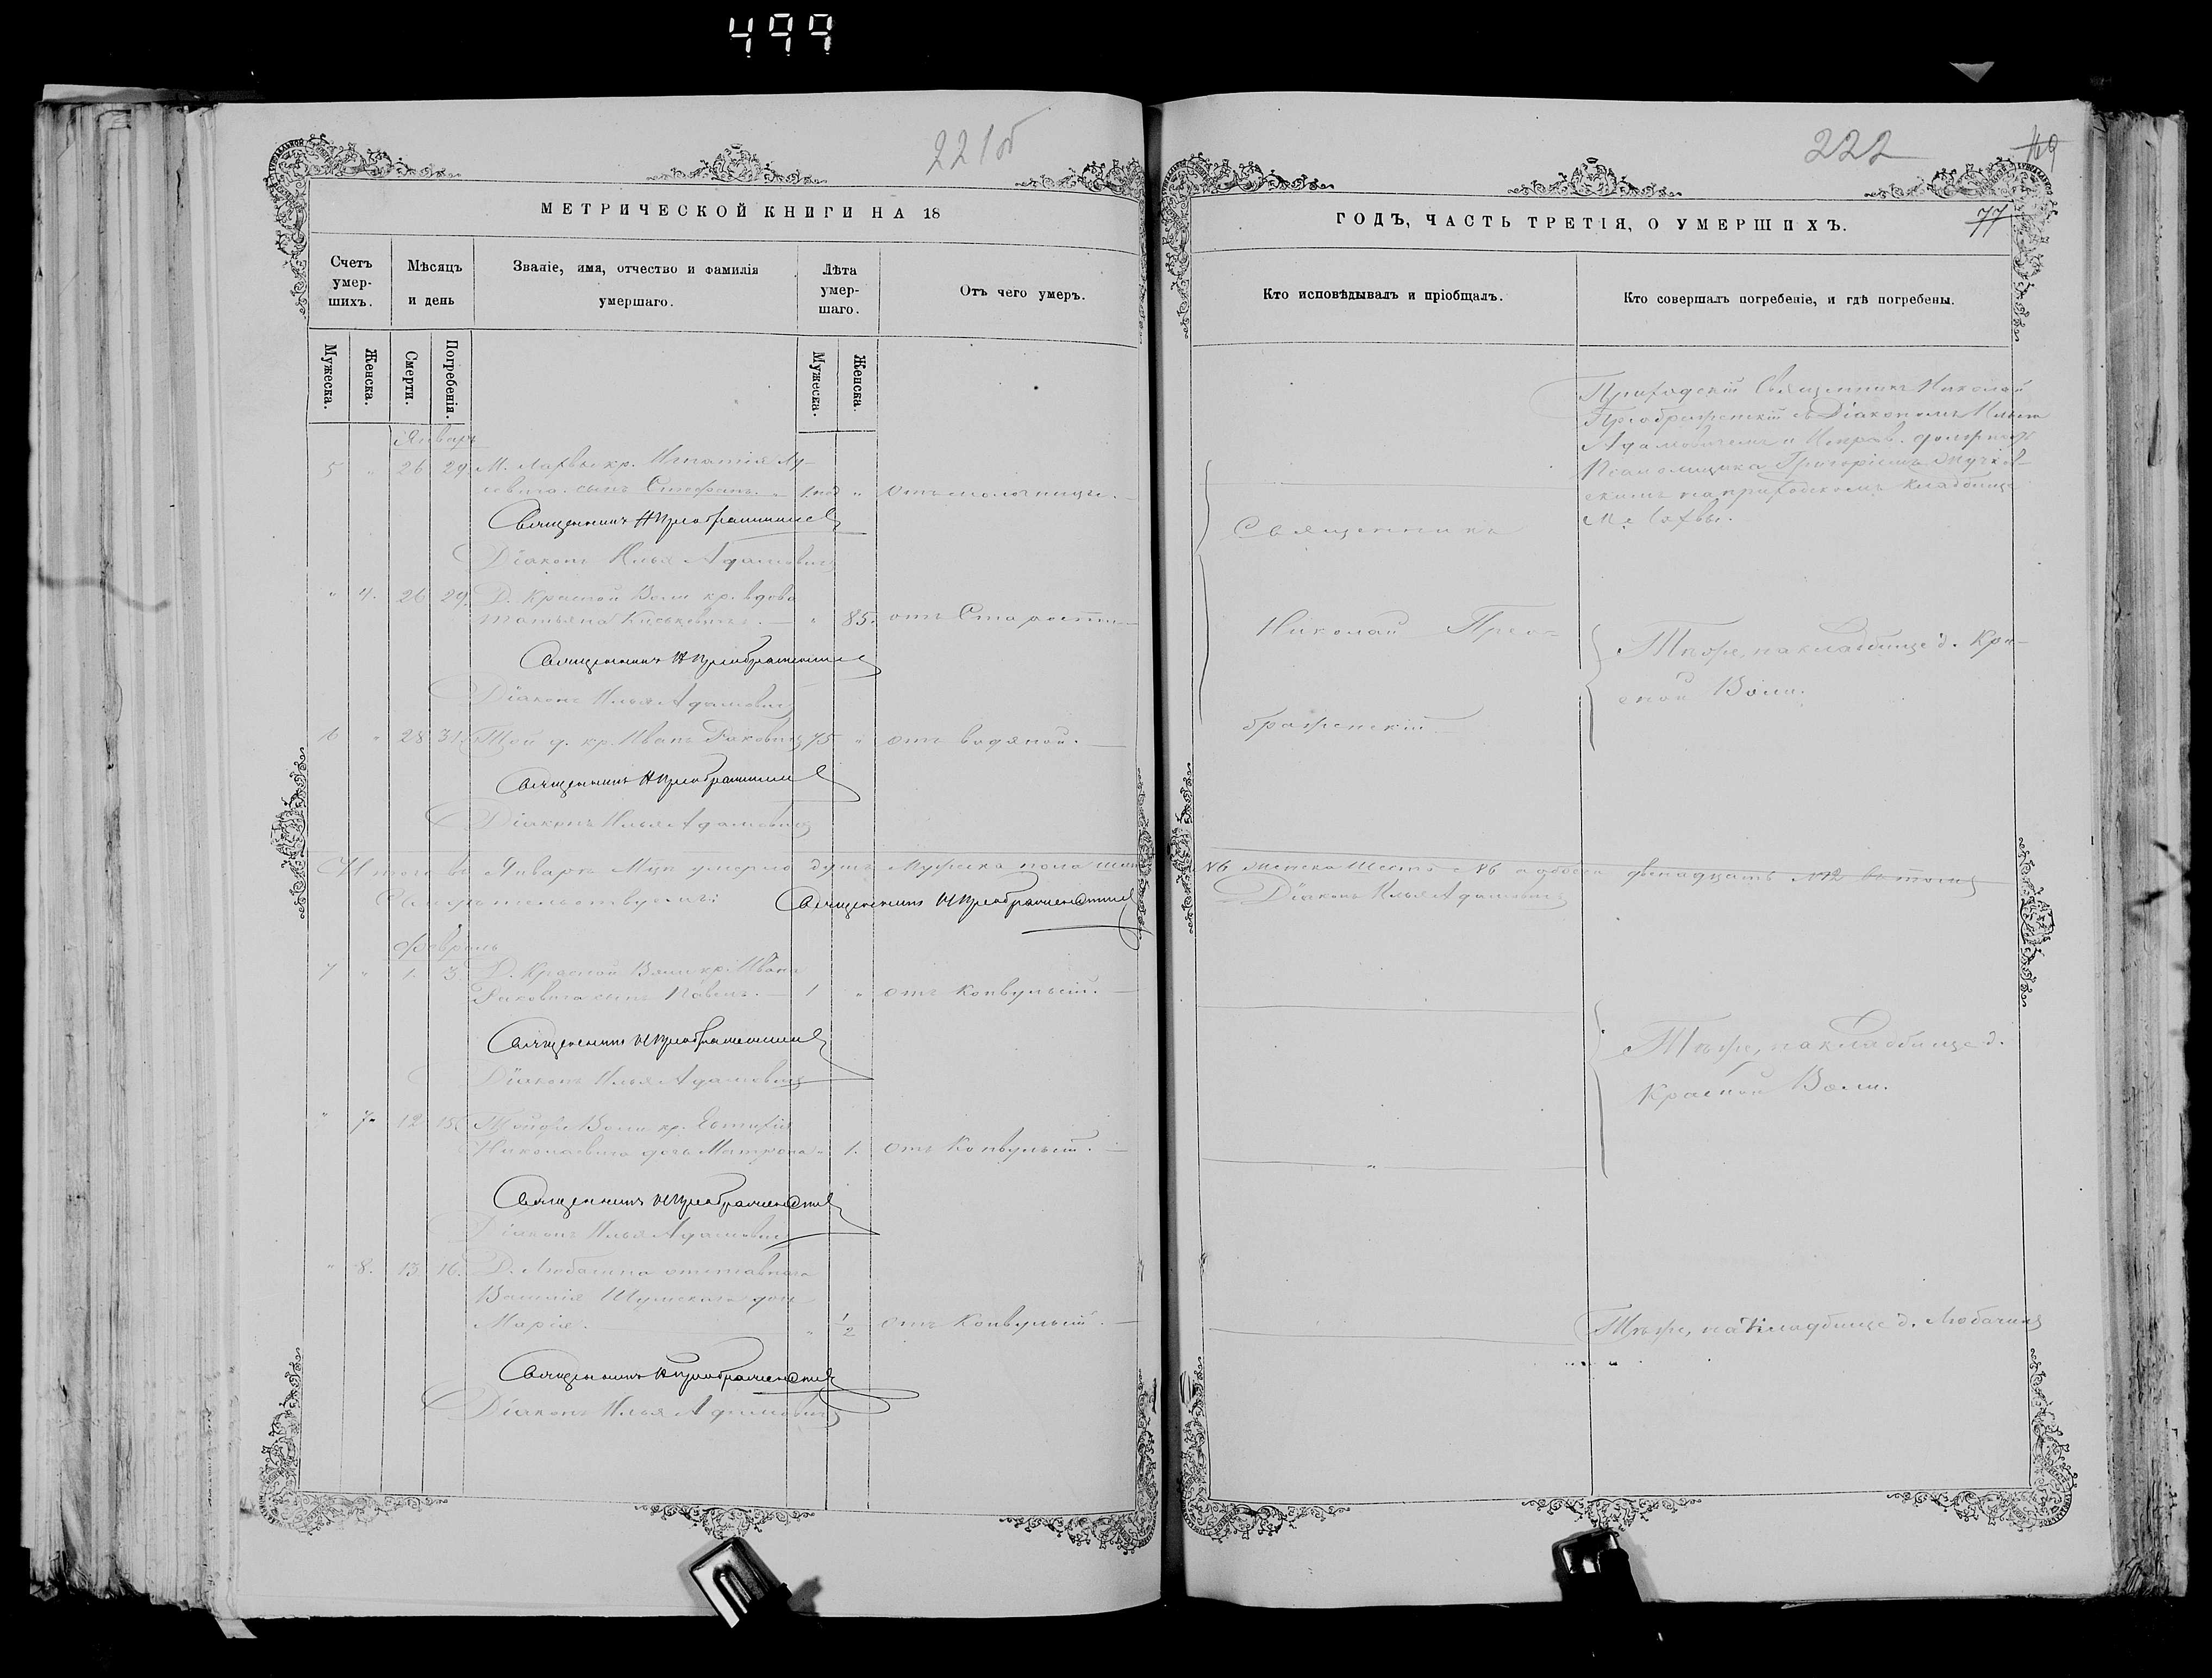 499
221об
МЕТРИЧЕСКОЙ КНИГИ НА 18
Счетъ умер-шихъ.
Мѣсяцъ и день
Званіе, имя, отчество и фамилія умершаго.
Лѣта умер-шаго.
Отъ чего умеръ.
Мужеска.
Женска.
Смерти.
Погребенія.
Мужеска.
Женска.
Январь
5 " 26 29 М. Лахвы кр. Игнатія
сынъ Стефанъ. "
Священникъ Н Преображенскій
Діаконъ Илья Адамовичъ
" 4. 26 29. Д. Красной Воли кр. вдова
Татьяна " 85. отъ Старости
Священникъ Н Преображенскій
Діаконъ Илья Адамовичъ
6 " 28 31. Той д. кр. Иванъ Раковичъ 75 " отъ водяной.
Священникъ Н Преображенскій
Діаконъ Илья Адамовичъ
Итого въ Январѣ умерло душъ Мужеска пола
Священникъ Н Преображенскій
Февраль
7 " 1. 3. Д. Красной Воли кр. Ивана
Раковича сынъ Павелъ. 1 " отъ Конвульсій.
Священникъ Н Преображенскій
Діаконъ Илья Адамовичъ
" 7. 12 15. Той же Воли кр. Евтихія
дочь Матрона " 1. отъ Конвульсій.
Священникъ Н Преображенскій
Діаконъ Илья Адамовичъ
" 8. 13 16. Д. Любачина отставнаго
Василія дочь
Марія. " 1/2 отъ Конвульсій.
Священникъ Н Преображенскій
Діаконъ Илья Адамовичъ
222
77
ГОДЪ, ЧАСТЬ ТРЕТІЯ, О УМЕРШИХЪ.
Кто исповѣдывалъ и пріобщалъ.
Кто совершалъ погребеніе, и гдѣ погребены.
Приходскій Священникъ Николай
Преображенскій съ Діакономъ Ильею
Адамовичемъ и должность
Псаломщика Григоріемъ
на приходскомъ кладбище
М. Лахвы.
Священникъ
Николай Прео-
браженскій
Тѣже, на кладбище д. Кра-
сной Воли.
№6 женска шесть №6 а обоего двенадцать №12
Діаконъ Илья Адамовичъ
Тѣже, на кладбище д.
Красной Воли.
Тѣже, на кладбище д. Любачина